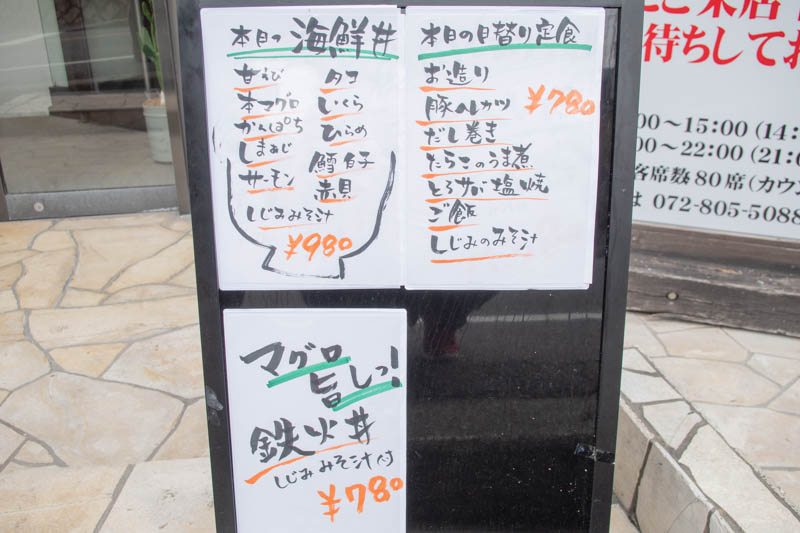 本日の海鮮丼
甘えび
本マグロ
かんぱち
しまあじ
サーモン
しじみみそ汁
タコ
いくら
ひらめ
鱈白子
赤貝
¥980
本日の日替り定食
お造り
豚ヘレカツ
¥780
だし巻き
たらこのうま煮
とろサバ塩焼
ご飯
しじみのみそ汁
マグロ
旨しっ!
鉄火丼
しじみみそ汁付
¥780
ご来店
待ちしてお
00〜15:00 (14:
00〜22:00 (21:0
客席数80席(カウン
は 072-805-5088